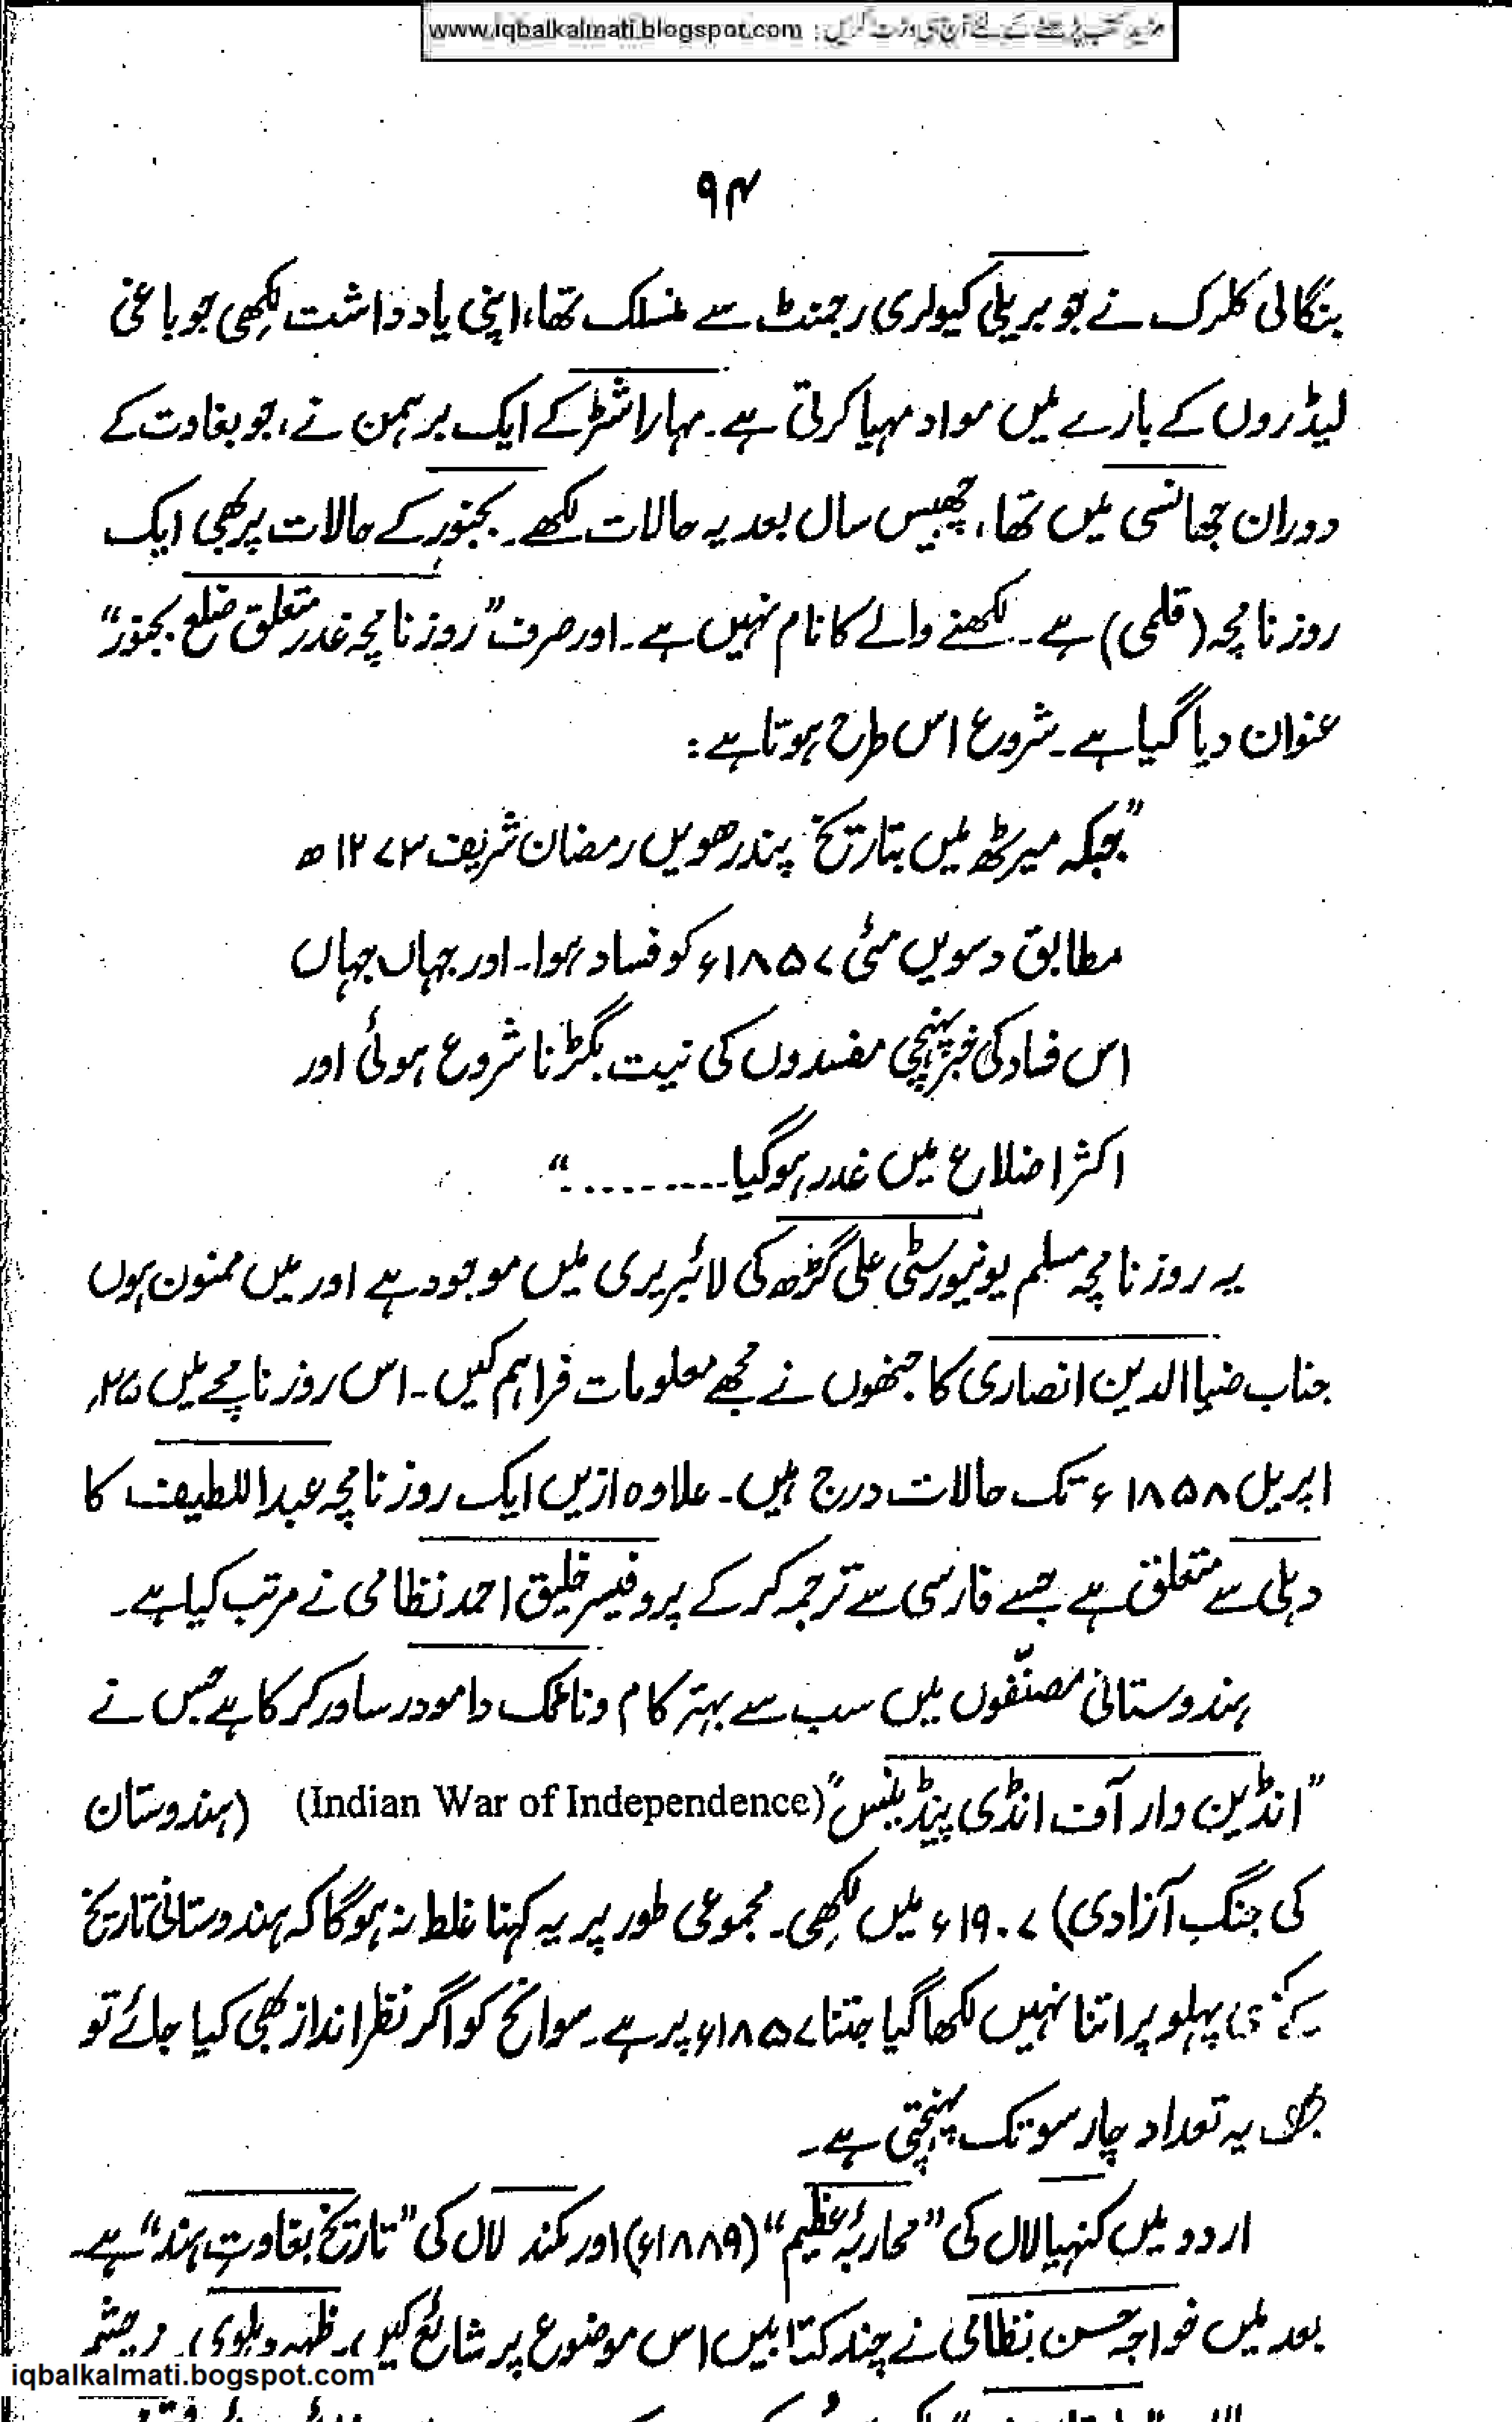 www.iqbalkalmati.blogspot.com : مزید کتب پڑھنے کے لئے آج ہی وزٹ کریں
۹۴
بنگالی کلرک نے جو بریلی کیولری رجمنٹ سے منسلک تھا، اپنی یادداشت لکھی جو باغی
لیڈروں کے بارے میں مواد مہیا کرتی ہے۔ مہاراشٹر کے ایک برہمن نے، جو بغاوت کے
دوران جھانسی میں تھا، چھبیس سال بعد یہ حالات لکھے۔ بجنور کے حالات پر بھی ایک
روزنامچہ (قلمی) ہے۔ لکھنے والے کا نام نہیں ہے۔ اور صرف "روزنامچہ غدر متعلق ضلع بجنور"
عنوان دیا گیا ہے۔ شروع اس طرح ہوتا ہے:
"جبکہ میرٹھ میں بتاریخ پندرھویں رمضان شریف ۱۲۷۳ھ
مطابق دسویں مئی ۱۸۵۷ء کو فساد ہوا۔ اور جہاں جہاں
اس فساد کی خبر پہنچی مفسدوں کی نیت بگڑنا شروع ہوئی اور
اکثر اضلاع میں غدر ہوگیا.........."
یہ روزنامچہ مسلم یونیورسٹی علی گڑھ کی لائبریری میں موجود ہے اور میں ممنون ہوں
جناب ضیاالدین انصاری کا جنھوں نے مجھے معلومات فراہم کیں۔ اس روزنامچے میں ۲۵؍
اپریل ۱۸۵۸ء تک حالات درج ہیں۔ علاوہ ازیں ایک روزنامچہ عبداللطیف کا
دہلی سے متعلق ہے جسے فارسی سے ترجمہ کر کے پروفیسر خلیق احمد نظامی نے مرتب کیا ہے۔
ہندوستانی مصنّفوں میں سب سے بہتر کام ونائک دامودر ساورکر کا ہے جس نے
"انڈین وار آف انڈی پینڈینس" (Indian War of Independence) (ہندوستان
کی جنگِ آزادی) ۱۹۰۷ء میں لکھی۔ مجموعی طور پر یہ کہنا غلط نہ ہوگا کہ ہندوستانی تاریخ
کے کسی پہلو پر اتنا نہیں لکھا گیا جتنا ۱۸۵۷ء پر ہے۔ سوانح کو اگر نظر انداز بھی کیا جائے تو
یہ تعداد چار سو تک پہنچتی ہے۔
اردو میں کنہیا لال کی "محاربۂ عظیم" (۱۸۸۹ء) اور مکند لال کی "تاریخ بغاوتِ ہند" ہے۔
بعد میں خواجہ حسن نظامی نے چند کتابیں اس موضوع پر شائع کیں۔ ظہیر دہلوی
iqbalkalmati.bogspot.com